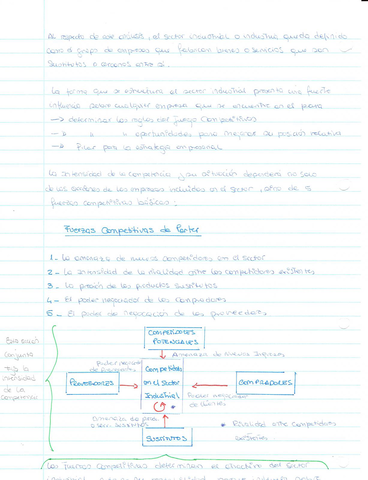 Al respecto de este análisis, el sector industrial o industria queda definido
como el grupo de empresas que fabrican bienes o servicios que son
sustitutos o cercanos entre sí.
La forma que se estructura el sector industrial presenta una fuerte
influencia sobre cualquier empresa que se encuentre en el
→ determinar las reglas del juego competitivas
→ " " oportunidades para mejorar su posición relativa
→ Pilar para la estrategia empresarial
La intensidad de la competencia y su situación dependerá no solo
de las acciones de las empresas incluidas en el sector, sino de 5
fuerzas competitivas básicas:
Fuerzas Competitivas de Porter
1- La amenaza de nuevos competidores en el sector
2- La intensidad de la rivalidad entre los competidores existentes
3- La presión de los productos sustitutos
4- El poder negociador de los compradores
5- El poder de negociación de los proveedores
COMPETIDORES
POTENCIALES
Amenaza de nuevos ingresos
Poder negociador
de proveedores
PROVEEDORES
Competidores
en el sector
Industrial
COMPRADORES
Poder negociador
de clientes
Amenaza de
SUSTITUTOS
* Rivalidad entre competidores
existentes
conjunta
fija la
intensidad
de la
competencia
Las fuerzas competitivas determinan el atractivo del sector